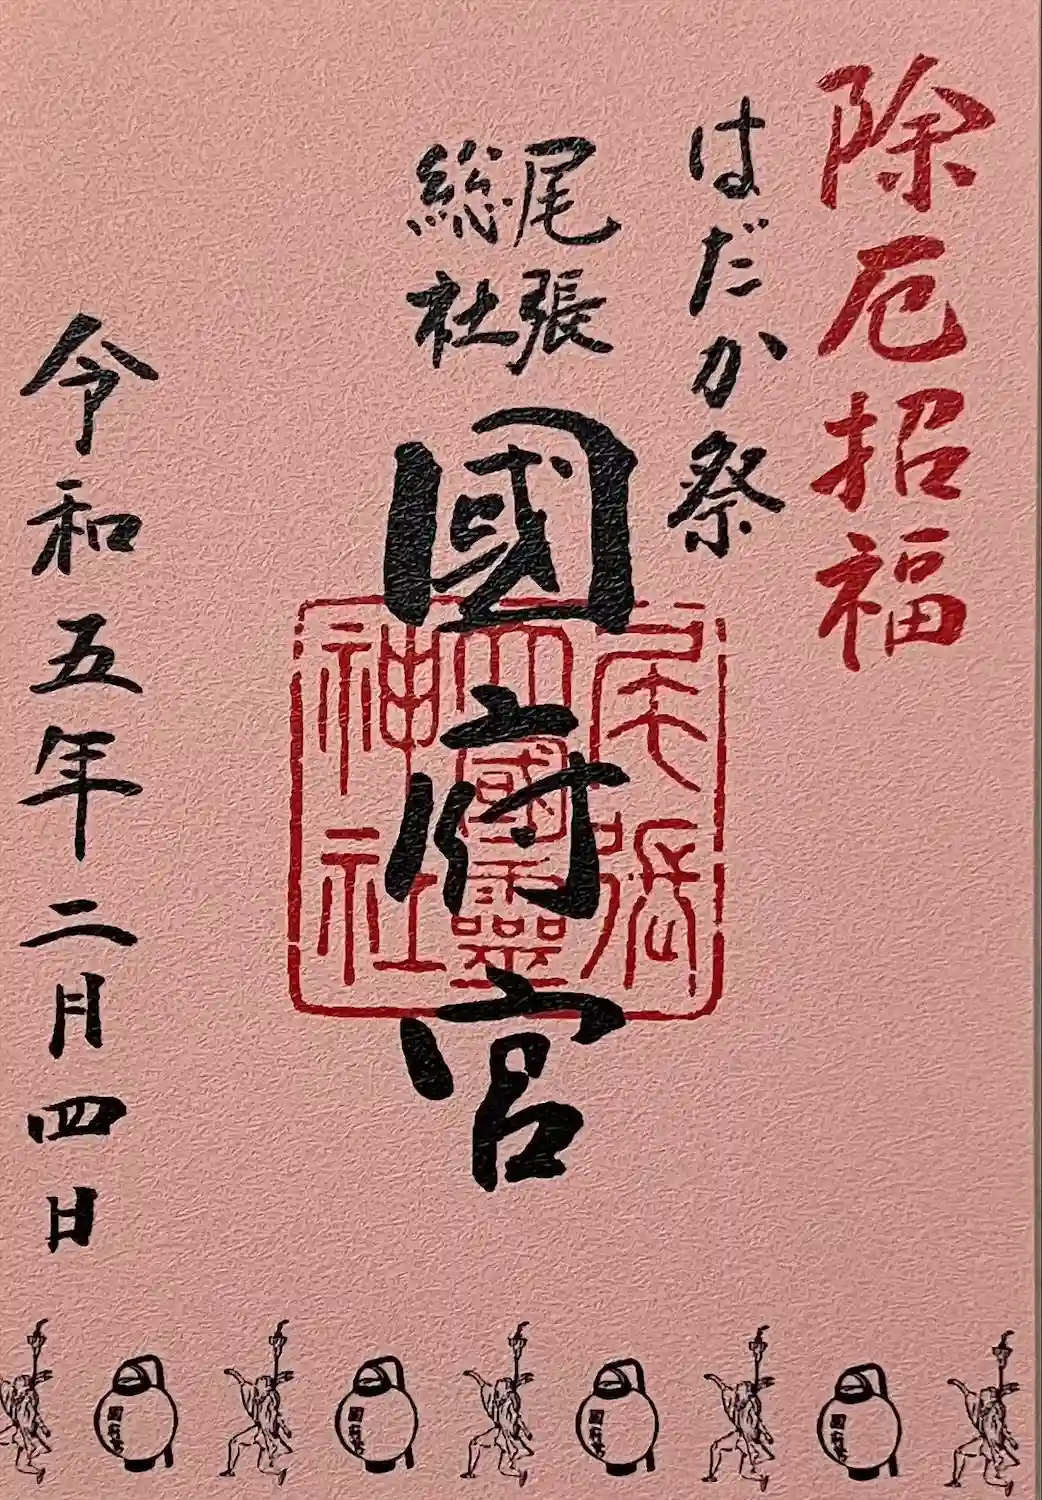 除厄招福
はだか祭
尾張
総社
國府宮
尾張
大國霊
神社
令和五年二月四日
國府宮
國府宮
國府宮
國府宮